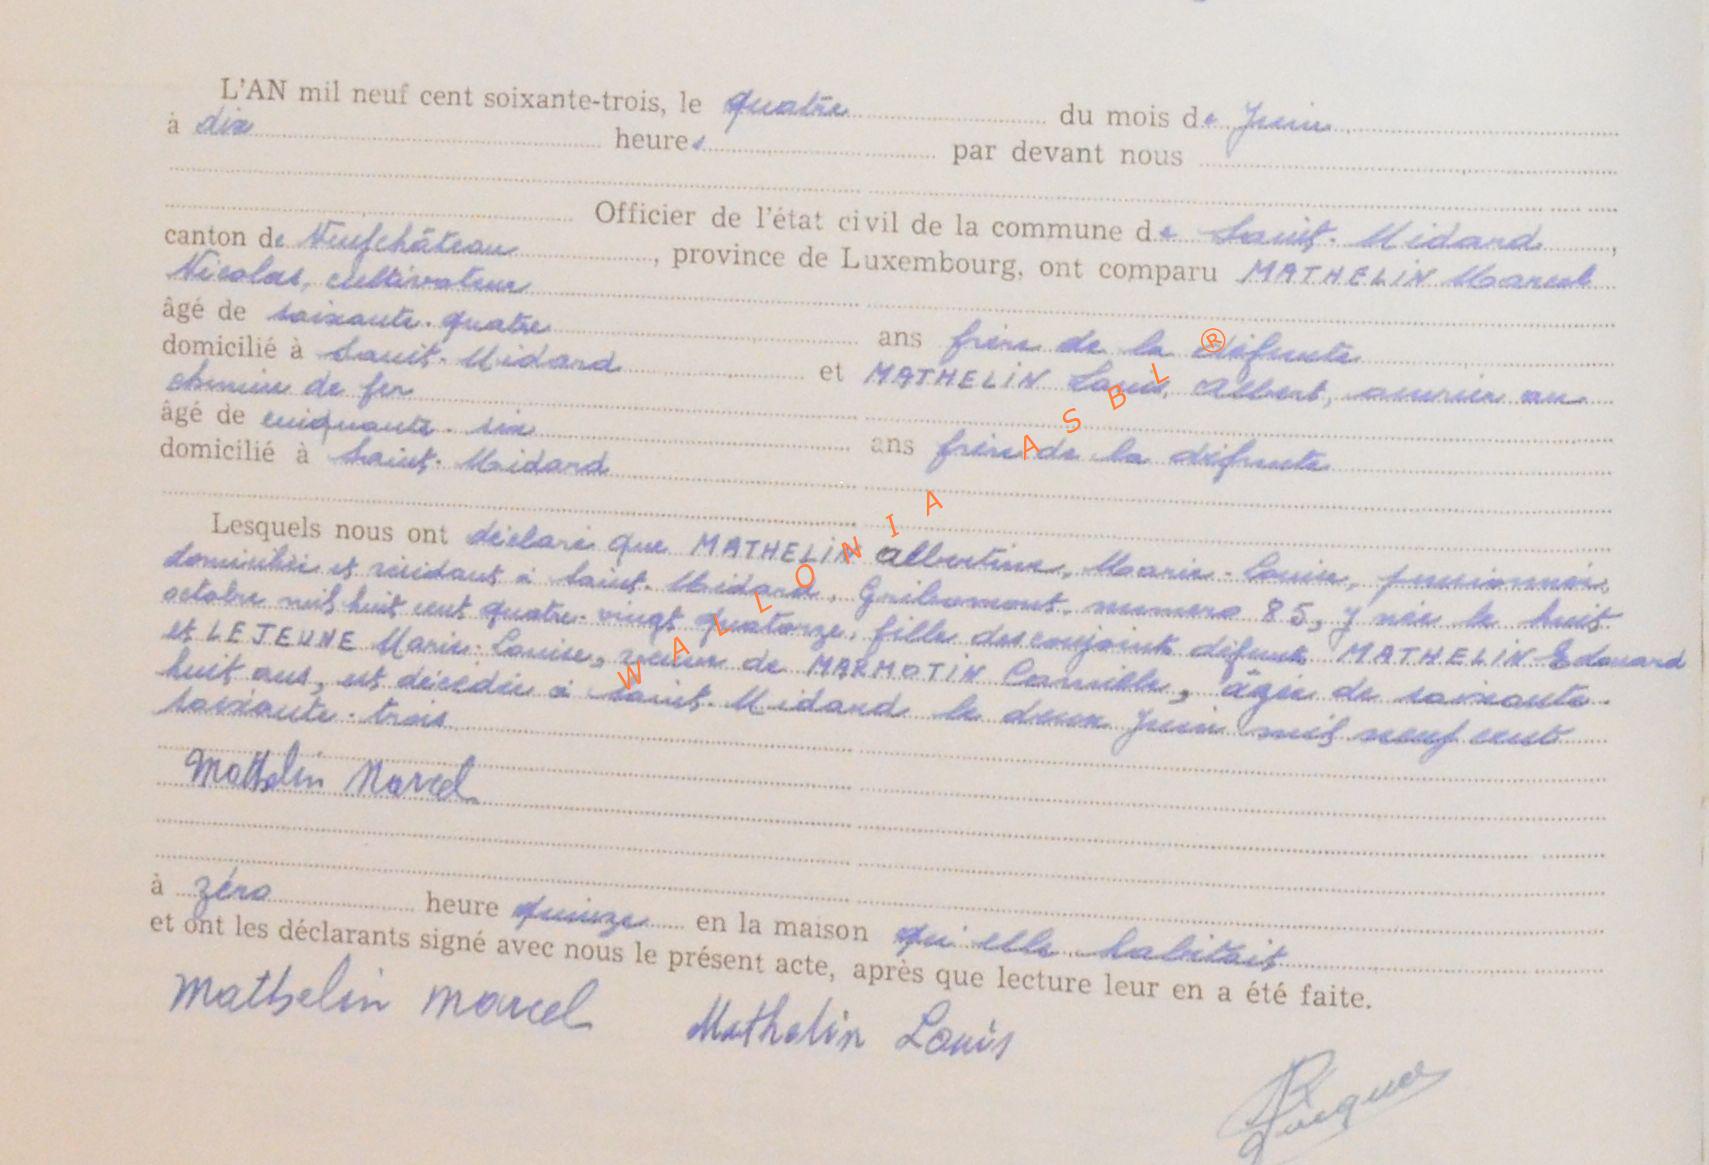 L'AN mil neuf cent soixante-trois, le quatre du mois de Juin
à dix heures par devant nous
Officier de l'état civil de la commune de Saint-Médard,
canton de Neufchâteau, province de Luxembourg, ont comparu MATHELIN Marcel
Nicolas, cultivateur
âgé de soixante-quatre ans frère de la défunte
domicilié à Saint-Médard et MATHELIN Louis, Albert, ouvrier au
chemin de fer
âgé de cinquante-six ans frère de la défunte
domicilié à Saint-Médard
Lesquels nous ont déclaré que MATHELIN Albertine, Marie-Louise, pensionnée,
domiciliée et résidant à Saint-Médard, Gribomont, numéro 85, y née le huit
octobre mil huit cent quatre-vingt quatorze, fille des conjoints défunts MATHELIN Edouard
et LEJEUNE Marie-Louise, veuve de MARMOTIN Camille, âgée de soixante-
huit ans, est décédée à Saint-Médard le deux Juin mil neuf cent
soixante-trois
Mathelin Marcel
à zéro heure quinze en la maison qu'elle habitait
et ont les déclarants signé avec nous le présent acte, après que lecture leur en a été faite.
Mathelin Marcel Mathelin Louis
WALLONIA ASBL ®